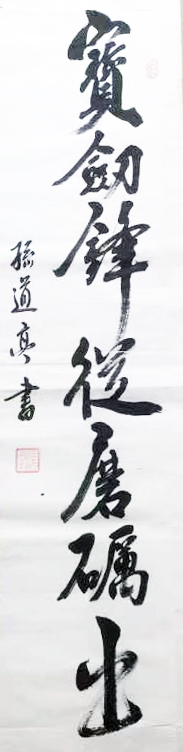 寶劔鋒從磨礪出
孫道亭書